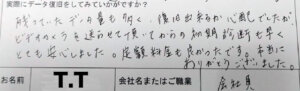 実際にデータ復旧をしてみていかがですか?
残っていたデータ量も多く、復旧出来るか心配でしたが
ビデオカメラを送らせて頂いてからの初期診断も早く
とても安心しました。定額料金も良かったです。本当に
ありがとうございました。
お名前 T.T 会社名またはご職業 会社員